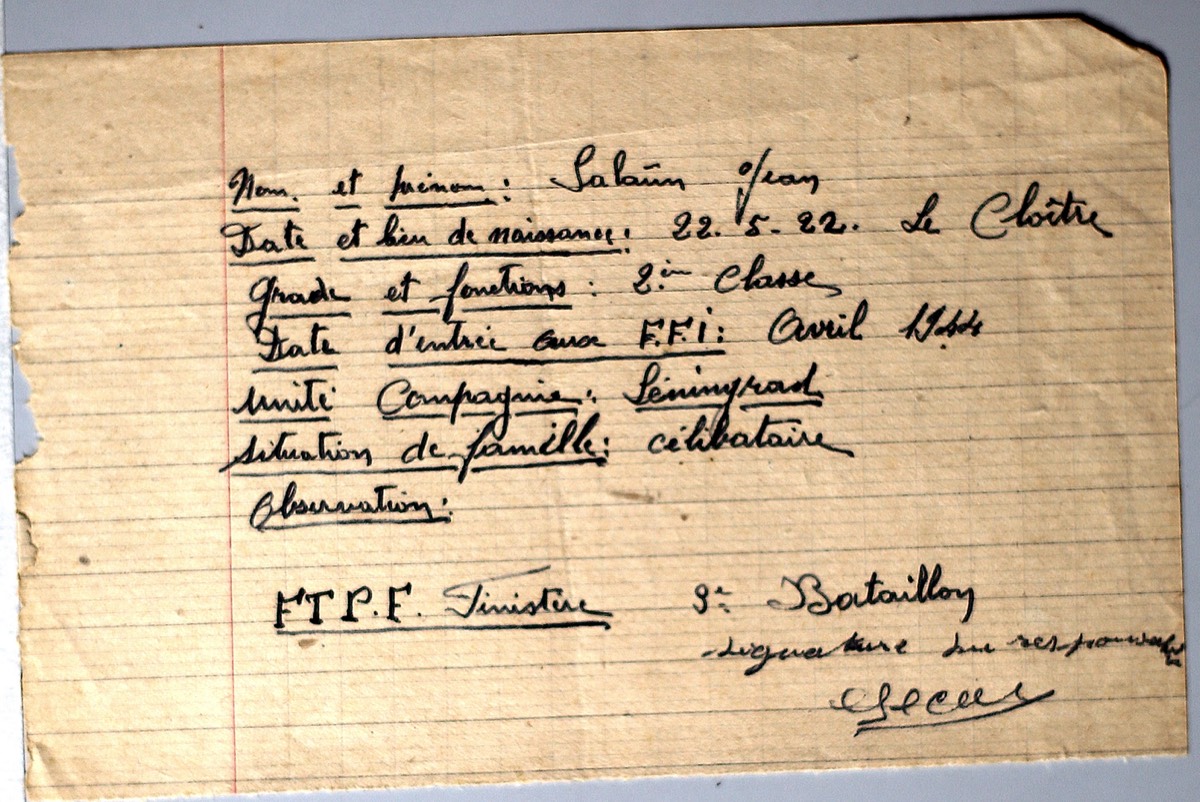 Nom et prénom: Salaün Jean
Date et lieu de naissance: 22.5-22. Le Cloître
Grade et fonctions: 2ème Classe
Date d'entrée aux F.F.I: Avril 1944
Unité Compagnie: Léningrad
Situation de famille: célibataire
Observation:
FTP.F. Finistère Bataillon
signature du responsable